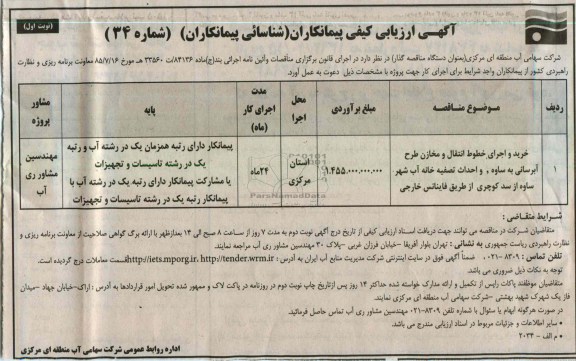 (نوبت اول)
آگهی ارزیابی کیفی پیمانکاران (شناسائی پیمانکاران) (شماره ۳۴)
شرکت سهامی آب منطقه ای مرکزی(بعنوان دستگاه مناقصه گذار) در نظر دارد در اجرای قانون برگزاری مناقصات وآئین نامه اجرائی بند(ج)ماده ۱۲ مورخ ۸۵/۷/۱۶ معاونت برنامه ریزی و نظارت
راهبردی کشور از پیمانکاران واجد شرایط برای اجرای کار جهت پروژه با مشخصات ذیل دعوت به عمل آورد.
ردیف موضوع مناقصه مبلغ برآوردی محل اجرا مدت اجرای کار (ماه) پایه مشاور پروژه
۱ خرید و اجرای خطوط انتقال و مخازن طرح آبرسانی به ساوه , و احداث تصفیه خانه آب شهر ساوه از سد کوچری از طریق فاینانس خارجی ۱.۴۵۵.۰۰۰.۰۰۰.۰۰۰ استان مرکزی ۲۴ماه پیمانکار دارای رتبه همزمان یک در رشته آب و رتبه یک در رشته تاسیسات و تجهیزات یا مشارکت پیمانکار دارای رتبه یک در رشته آب با پیمانکار رتبه یک در رشته تاسیسات و تجهیزات مهندسین مشاور ری آب
شرایط متقاضی :
متقاضیان شرکت در مناقصه می توانند جهت دریافت اسناد ارزیابی کیفی از تاریخ درج آگهی نوبت دوم به مدت ۷ روز از ساعت ۸ صبح الی ۱۴ بعدازظهر با ارائه برگ گواهی صلاحیت از معاونت برنامه ریزی و
نظارت راهبردی ریاست جمهوری به نشانی : تهران بلوار آفریقا –خیابان فرزان غربی –پلاک ۳۰ مهندسین مشاور ری آب مراجعه نمایند.
تلفن تماس : ۸۳۰۹-۰۲۱ ضمناً آگهی فوق در سایت اینترنتی شرکت مدیریت منابع آب ایران به آدرس : http://iets.mporg.ir، http://tender.wrm.ir قسمت معاملات درج گردیده است.
توجه به نکات ذیل ضروری می باشد.
متقاضیان موظفند پاکات راپس از تکمیل و ارائه مدارک خواسته شده حداکثر ۱۴ روز پس ازتاریخ چاپ نوبت دوم در روزنامه در پاکت لاک و ممهور شده تحویل امور قراردادها به آدرس : اراک–خیابان جهاد –میدان
فاز یک شهرک شهید بهشتی –شرکت سهامی آب منطقه ای مرکزی نمایند.
در صورت هرگونه ابهام یا سئوال با شماره تلفن ۸۳۰۹-۰۲۱ مهندسین مشاور ری آب تماس حاصل فرمائید.
- سایر اطلاعات و جزئیات مربوط در اسناد ارزیابی مندرج می باشد.
- م الف – ۲۰۳۴
اداره روابط عمومی شرکت سهامی آب منطقه ای مرکزی